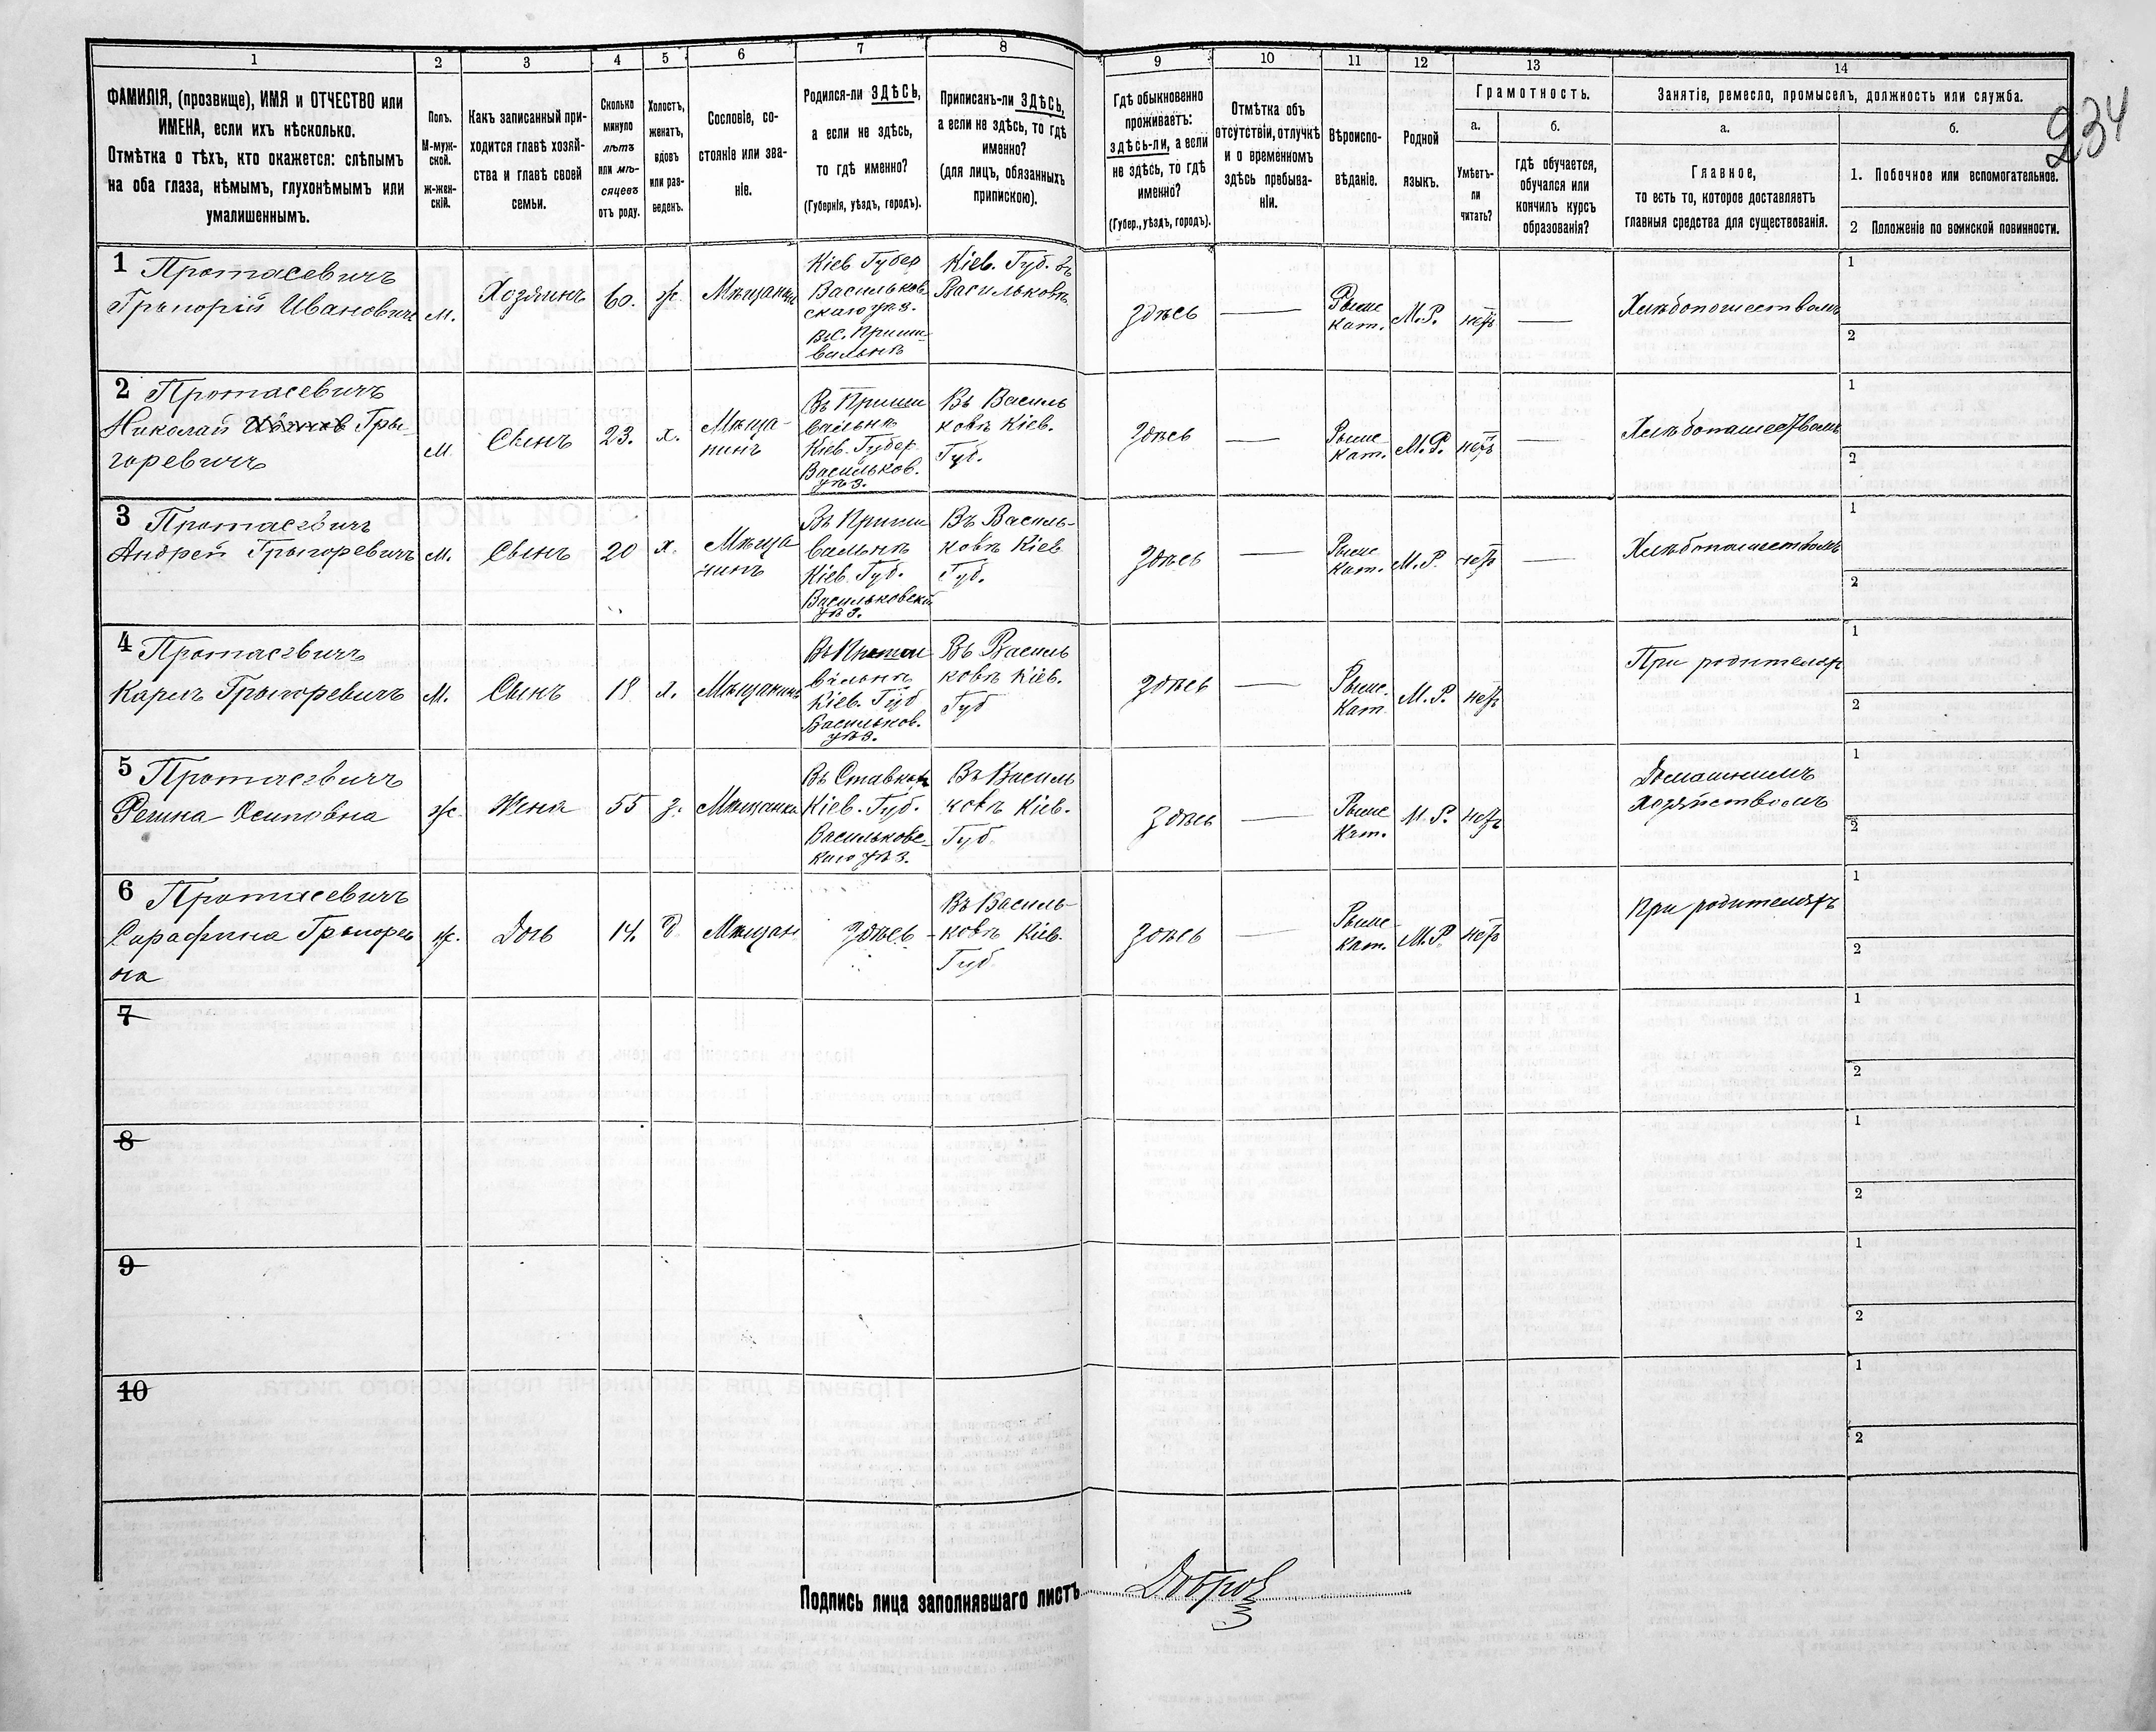 234
1
2
3
4
5
6
7
8
9
10
11
12
13
14
ФАМИЛІЯ, (прозвище), ИМЯ и ОТЧЕСТВО или
ИМЕНА, если ихъ нѣсколько.
Отмѣтка о тѣхъ, кто окажется: слѣпымъ
на оба глаза, нѣмымъ, глухонѣмымъ или
умалишеннымъ.
Полъ.
М-муж-
ской.
ж-жен-
скій.
Какъ записанный при-
ходится главѣ хозяй-
ства и главѣ своей
семьи.
Сколько
минуло
лѣтъ
или мѣ-
сяцевъ
отъ роду.
Холостъ,
женатъ,
вдовъ
или раз-
веденъ.
Сословіе, со-
стояніе или зва-
ніе.
Родился-ли ЗДѢСЬ,
а если не здѣсь,
то гдѣ именно?
(Губернія, уѣздъ, городъ).
Приписанъ-ли ЗДѢСЬ,
а если не здѣсь, то гдѣ
именно?
(для лицъ, обязанныхъ
припискою).
Гдѣ обыкновенно
проживаетъ:
здѣсь-ли, а если
не здѣсь, то гдѣ
именно?
(Губер., уѣздъ, городъ).
Отмѣтка объ
отсутствіи, отлучкѣ
и о временномъ
здѣсь пребыва-
ніи.
Вѣроиспо-
вѣданіе.
Родной
языкъ.
Грамотность.
а.
Умѣетъ-
ли
читать?
б.
гдѣ обучается,
обучался или
кончилъ курсъ
образованія?
Занятіе, ремесло, промыселъ, должность или служба.
а.
Главное,
то есть то, которое доставляетъ
главныя средства для существованія.
б.
1. Побочное или вспомогательное.
2 Положеніе по воинской повинности.
1 Протасевичъ
Грыгорій Ивановичъ
м.
Хозяинъ
60.
ж.
Мѣщанинъ
Кіев Губер
Васильков
скаго уѣз.
Вс. Приши
вальнѣ
Кіев. Губ. въ
Васильковѣ
здѣсь
Рыме
Кат.
М.Р.
нѣтъ
Хлѣбопашествомъ
1
2
2 Протасевичъ
Николай Гры-
горевичъ
м.
Сынъ
23.
х.
Мѣща-
нинъ
Въ Приши
вальнѣ
Кіев. Губер.
Васильков.
уѣз.
Въ Василь
ковѣ Кіев.
Губ.
здѣсь
Рыме
Кат.
М.Р.
нѣтъ
Хлѣбопашествомъ
1
2
3 Протасевичъ
Андрей Грыгоревичъ
м.
Сынъ
20
х.
Мѣща
нинъ
Въ Приши
вальнѣ
Кіев. Губ.
Васильковскаго
уѣз.
Въ Василь-
ковѣ Кіев
Губ.
здѣсь
Рыме
Кат.
М.Р.
нѣтъ
Хлѣбопашествомъ
1
2
4 Протасевичъ
Карлъ Грыгоревичъ
м.
Сынъ
х.
Мѣщанинъ
вальнѣ
Кіев. Губ
Васильков.
уѣз.
Въ Василь
ковѣ Кіев.
Губ
здѣсь
Рыме.
Кат
М.Р.
нѣтъ
При родителяхъ
1
2
5 Протасевичъ
Регина Осиповна
ж.
Жена
55
з.
Мѣщанка
Кіев. Губ.
Васильковс-
каго уѣз.
Въ Василь
ковѣ Кіев.
Губ.
здѣсь
Рыме
Кат.
М.Р.
нѣтъ
Домашнимъ
хозяйствомъ
1
2
6 Протасевичъ
Сарафина Грыгорев
на
ж.
Дочь
14.
д
Мѣщан
здѣсь
Въ Василь-
ковѣ Кіев.
Губ
здѣсь
Рыме-
Кат.
М.Р
нѣтъ
При родителяхъ
1
2
7
1
2
8
1
2
9
1
2
10
1
2
Подпись лица заполнявшаго листъ